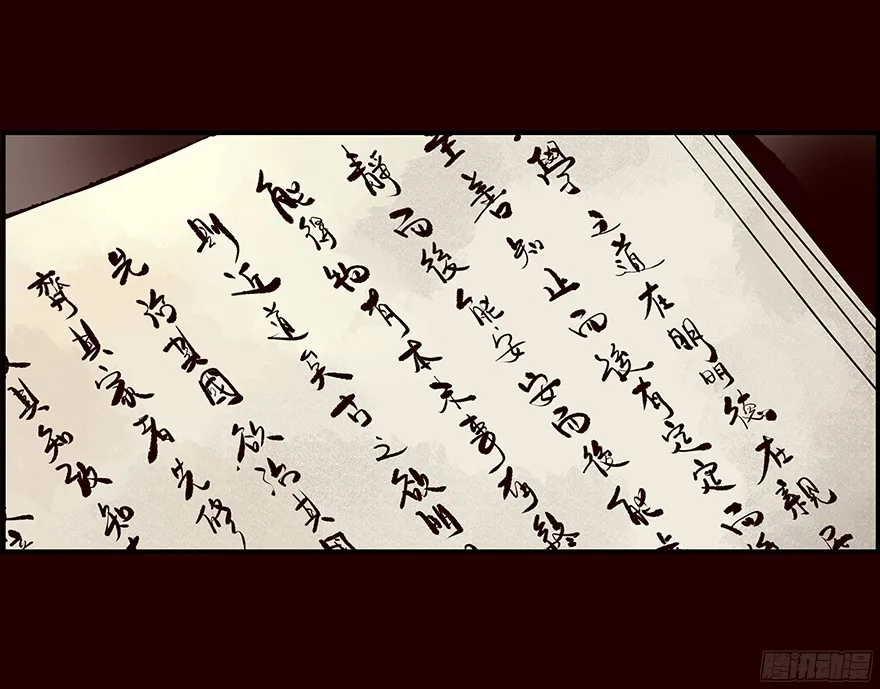 學之道在明明德在親民
至善知止而後有定定而後
靜而後能安安而後能
能得物有本末事有終
則近道矣古之欲明
先治其國欲治其國
齊其家者先修
其知致知
腾讯动漫